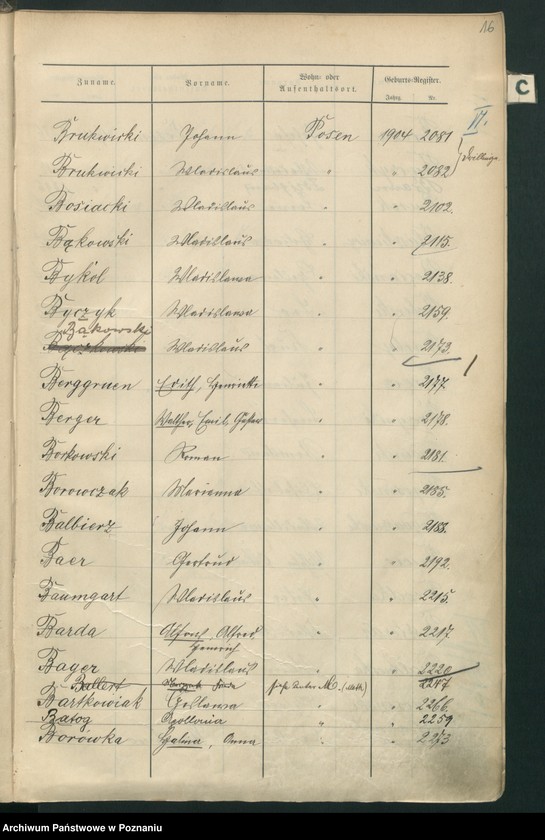 16
Zuname. Vorname. Wohn- oder Aufenthaltsort. Geburts-Register.
Jahrg. Nr.
C
II.
Brukwicki Johann Posen 1904 2081
Brukwicki Wladislaus " " 2082 } Zwillinge
Bosiacki Wladislaus " " 2102.
Bąkowski Wladislaus " " 2115.
Bykol Wladislawa " " 2138.
Byczyk Wladislawa " " 2159.
Bąkowski
Wladislaus " " 2173.
Berggruen Edith, Henriette " " 2177.
Berger Walther, Emil, Gustav " " 2178.
Borkowski Roman " " 2181.
Borowczak Marianna " " 2185.
Balbierz Johann " " 2188.
Baer Gertrud " " 2192.
Baumgart Wladislaus " " 2215.
Barda Alfred
Heinrich " " 2217.
Bager Wladislaus " " 2220
Ballest siehe unter M. 2247
Bartkowiak " " 2266.
Batog Apollonia " " 2259
Borówka Halina, Anna " " 2273
Archiwum Państwowe w Poznaniu